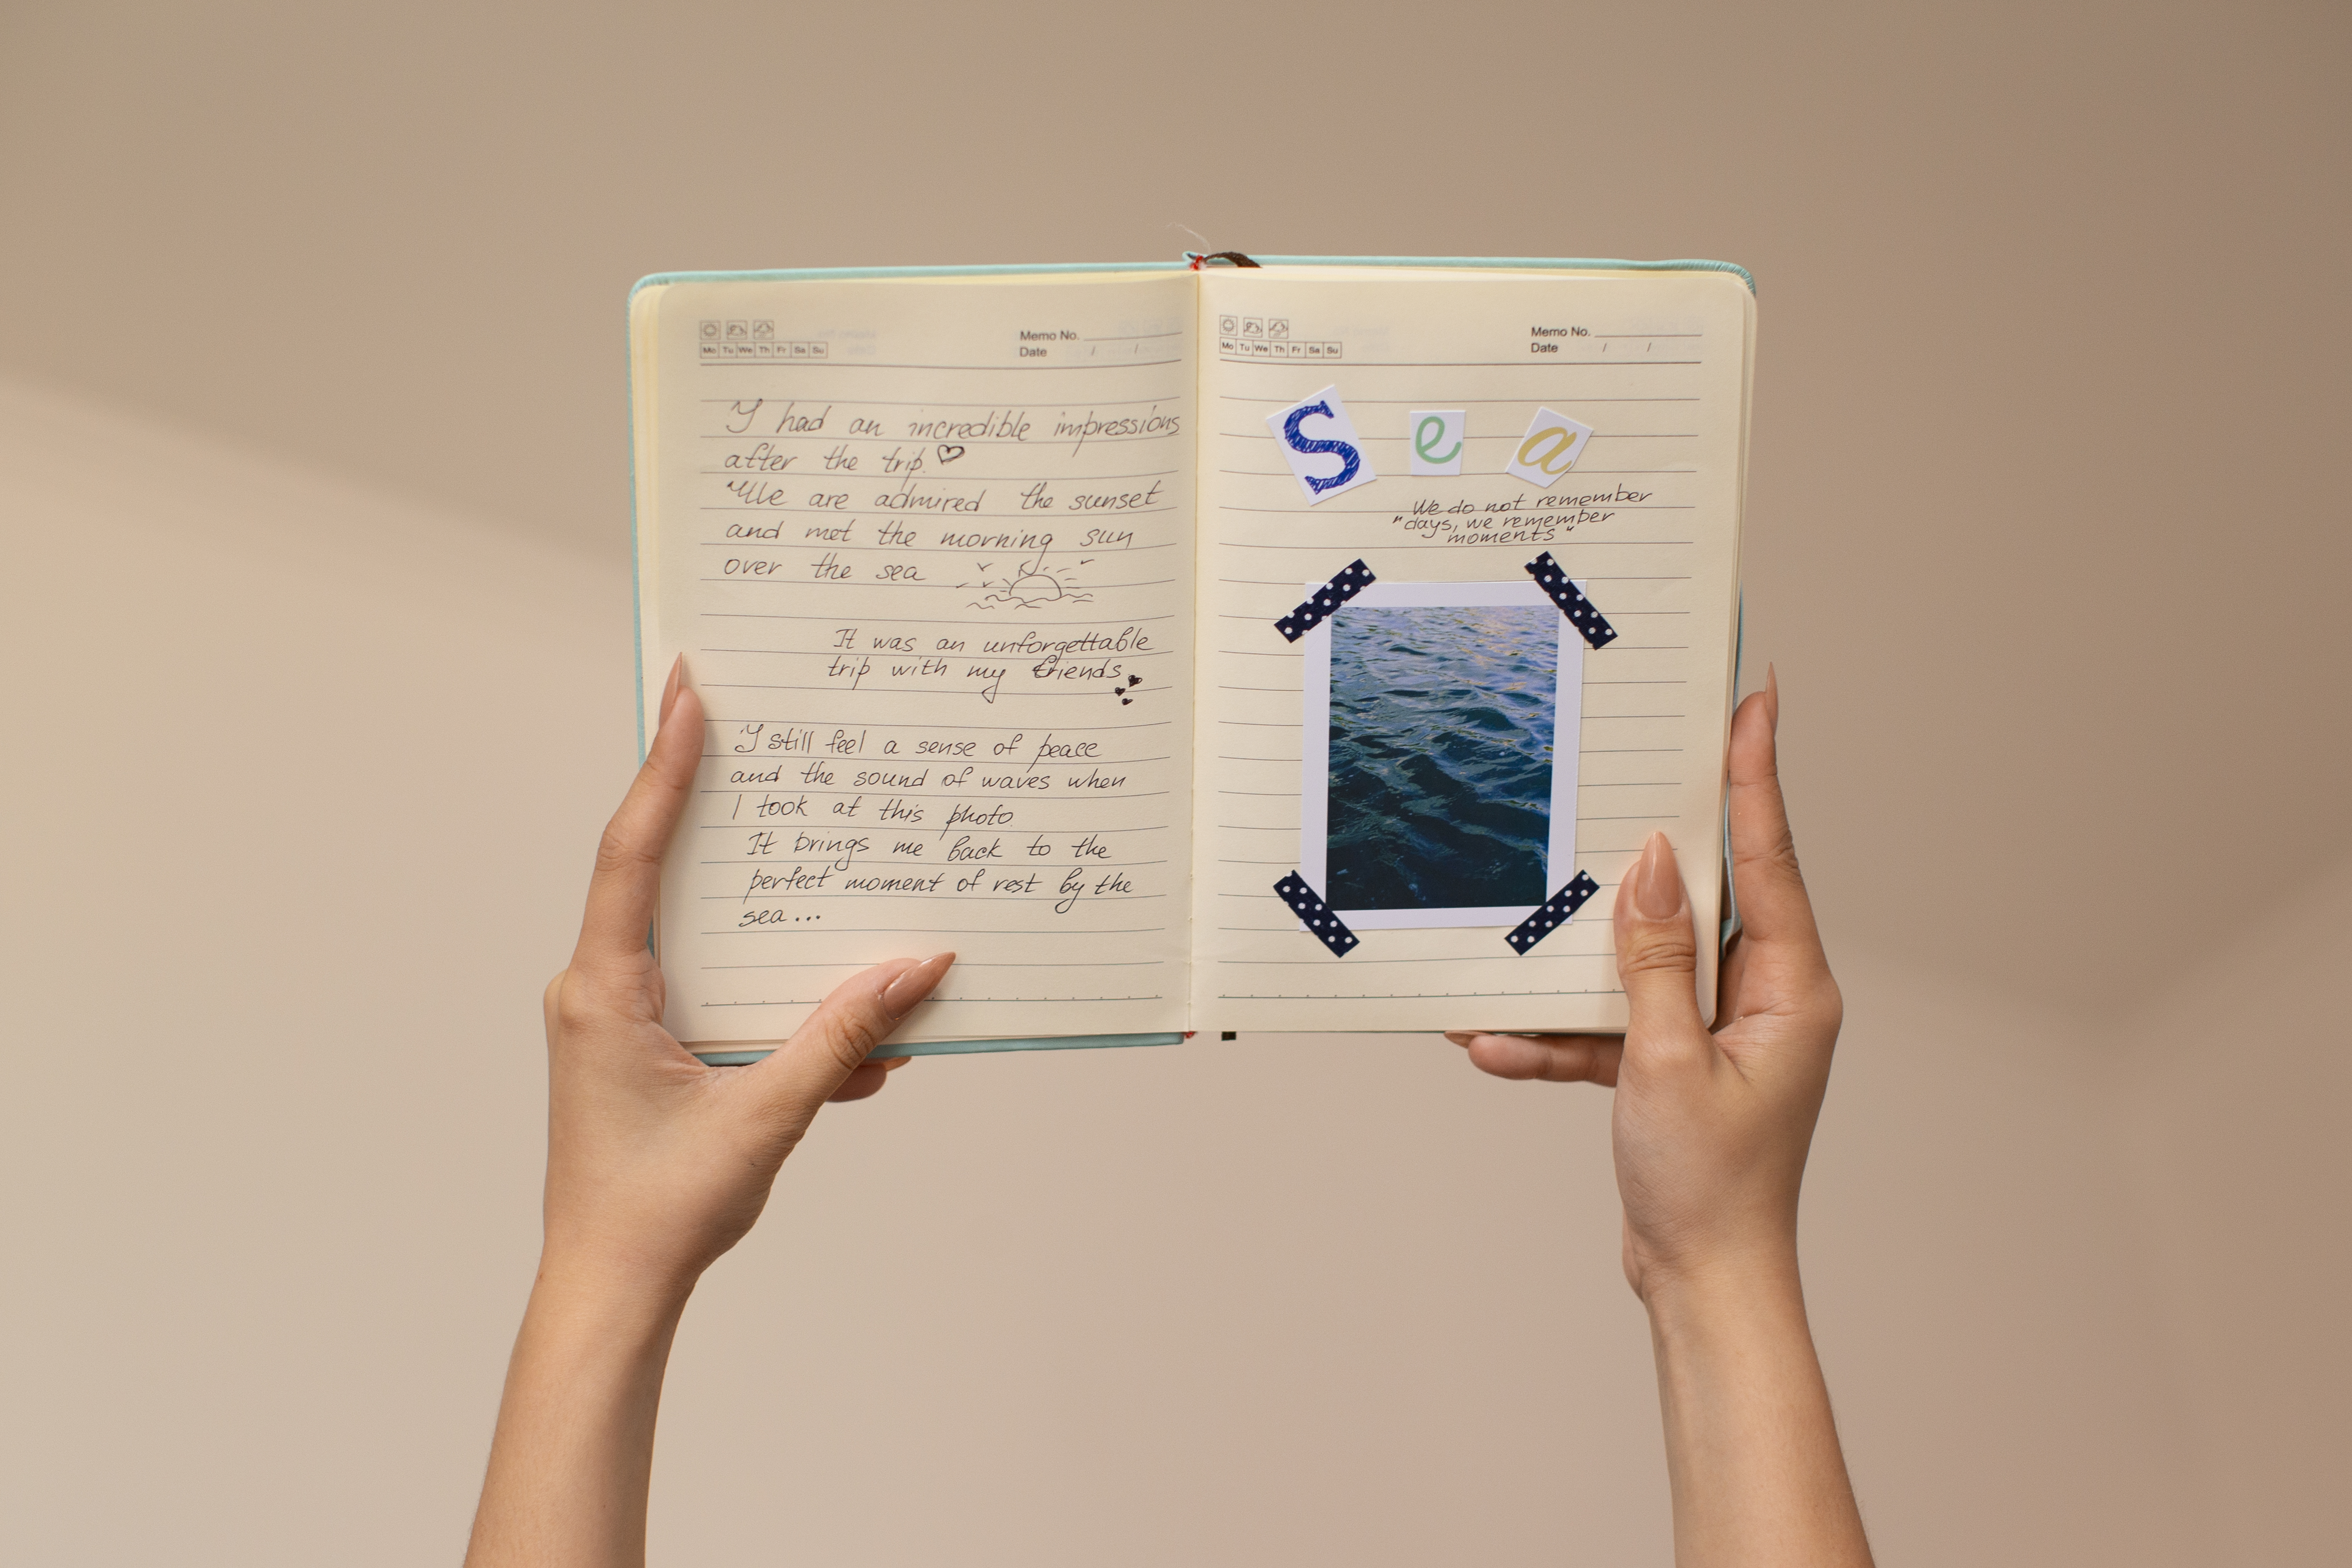 Memo No.
Mo Tu We Th Fr Sa Su
Date / /
I had an incredible impressions
after the trip.
We are admired the sunset
and met the morning sun
over the sea
It was an unforgettable
trip with my friends
I still feel a sense of peace
and the sound of waves when
I took at this photo
It brings me back to the
perfect moment of rest by the
sea...
Memo No.
Mo Tu We Th Fr Sa Su
Date / /
Sea
We do not remember
"days, we remember
moments"